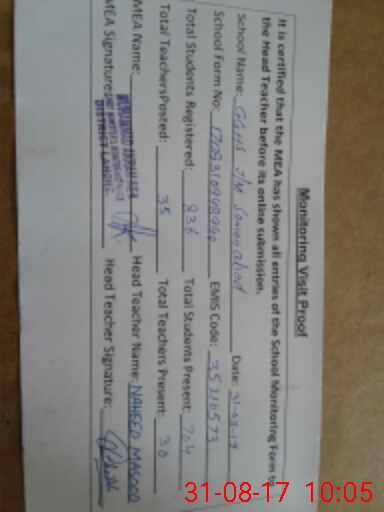 Monitoring Visit Proof
It is certified that the MEA has shown all entries of the School Monitoring Form to
the Head Teacher before its online submission.
School Name: GGHS Date: 31-08-17
School Form No: EMIS Code: 35210573
Total Students Registered: 836 Total Students Present: 704
Total Teachers Posted: 35 Total Teachers Present: 30
MEA Name: Head Teacher Name: NAHEED MASOOD
MEA Signature: Head Teacher Signature:
DISTRICT LAHORE
31-08-17 10:05